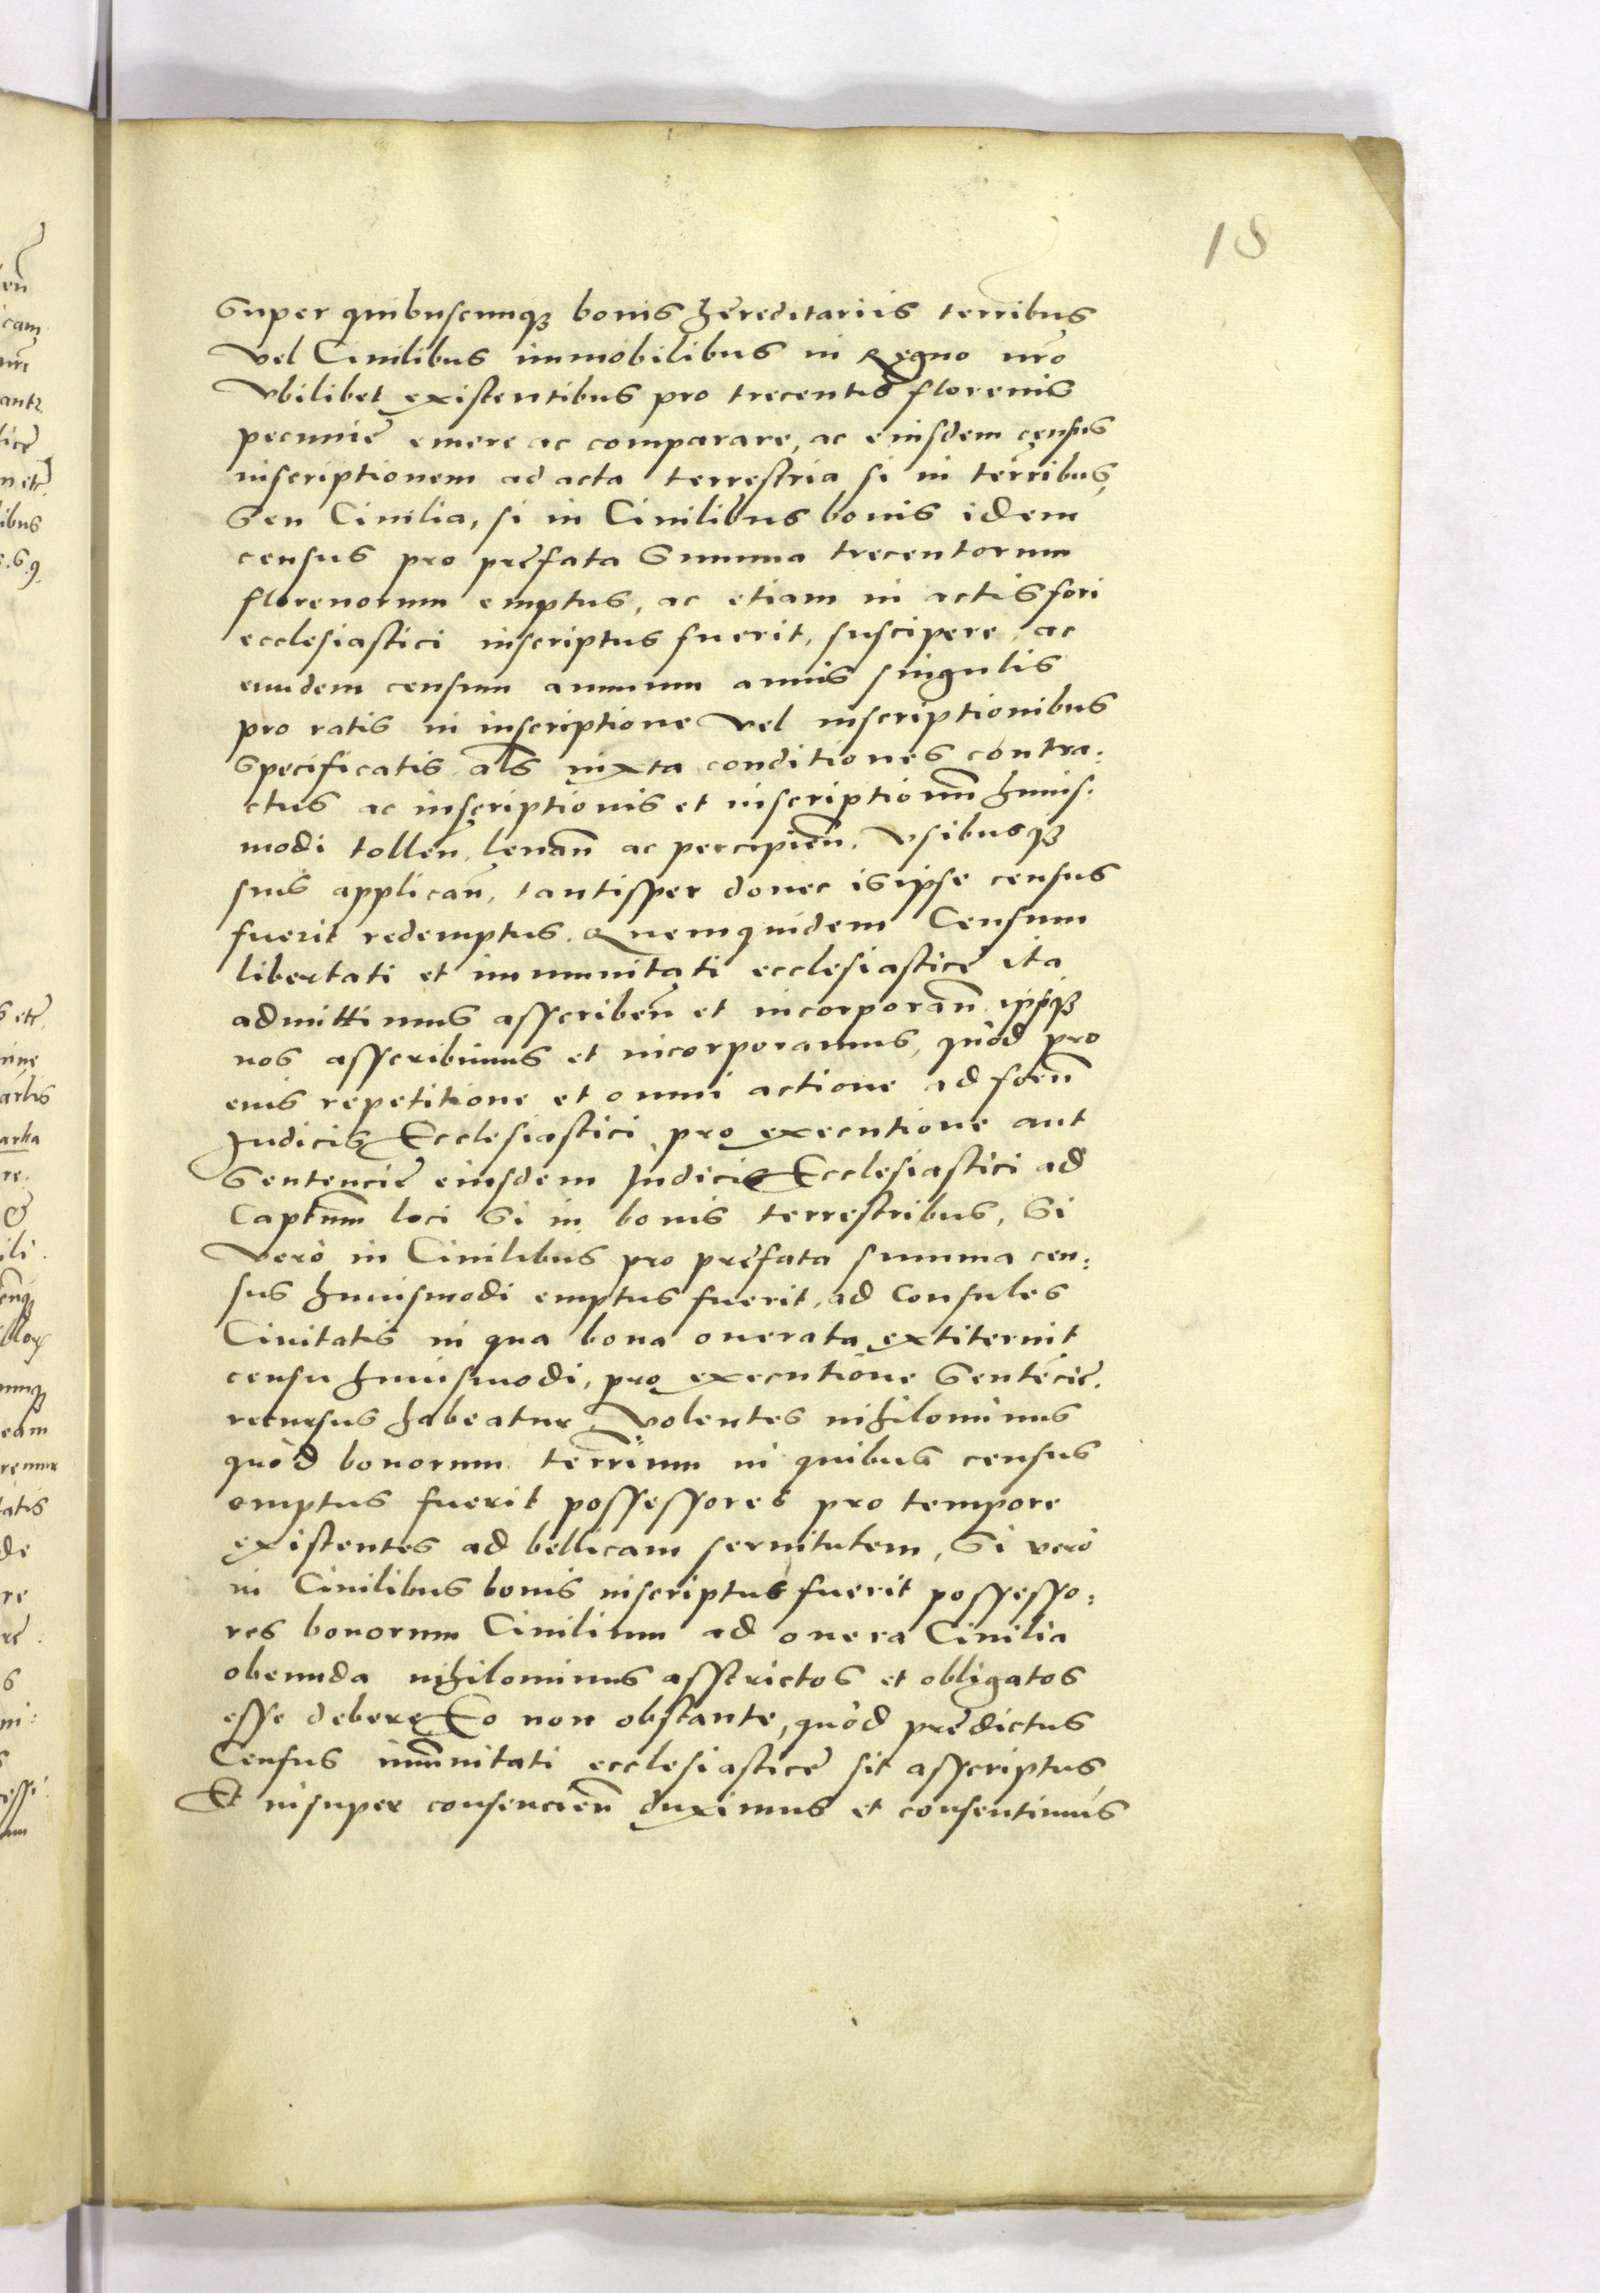 18
Super quibuscunque bonis hereditariis terribus
Vel Ciuilibus immobilibus in Regno nro
Vbilibet existentibus pro trecentis florenis
pecunie emere ac comparare, ac eiusdem census
inscriptionem ad acta terrestria si in terribus,
Seu Ciuilia, si in Ciuilibus bonis idem
census pro prefata Summa trecentorum
florenorum emptus, ac etiam in actis fori
ecclesiastici inscriptus fuerit, suscipere, ac
eundem censum annuum annis singulis
pro ratis in inscriptione Vel inscriptionibus
Specificatis als iuxta conditiones contra:
ctus ac inscriptionis et inscriptionum huius:
modi tollen, leuan ac percipien, Vsibusque
suis applican, tantisper donec is ipse census
fuerit redemptus. Quemquidem Censum
libertati et immunitati ecclesiastice ita
admittimus asscriben et incorporan ipsique
nos asscribimus et incorporamus, quod pro
eius repetitione et omni actione ad forum
Iudicis Ecclesiastici, pro executione aut
Sentencie eiusdem Iudicis Ecclesiastici ad
Captneum loci Si in bonis terrestribus, Si
Vero in Ciuilibus pro prefata summa cen:
sus huiusmodi emptus fuerit, ad Consules
Ciuitatis in qua bona onerata extiterint
censu huiusmodi, pro executione Sentecie.
recursus habeatur, Volentes nihilominus
quod bonorum terrium in quibus census
emptus fuerit possessores pro tempore
existentes ad bellicam seruitutem, Si vero
in Ciuilibus bonis inscriptus fuerit possesso:
res bonorum Ciuilium ad onera Ciuilia
obeunda nihilominus asstrictos et obligatos
esse debere Eo non obstante, quod predictus
Census imunitati ecclesiastice sit asscriptus,
Et insuper consencien duximus et consentimus